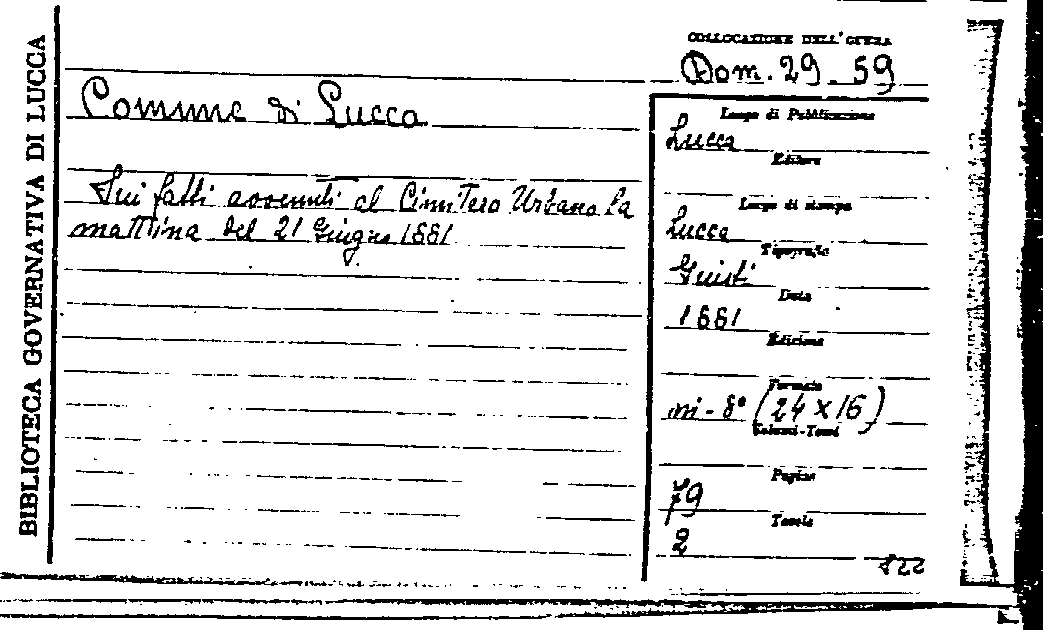 BIBLIOTECA GOVERNATIVA DI LUCCA
COLLOCAZIONE DELL'OPERA
Dom. 29. 59
Comune di Lucca
Sui fatti avvenuti al Cimitero Urbano la
mattina del 21 Giugno 1881
Luogo di Pubblicazione
Lucca
Editore
Luogo di stampa
Lucca
Tipografia
Giusti
Data
1881
Edizione
Formato
in-8° (24 x 16)
Volumi-Tomi
Pagine
79
Tavole
2